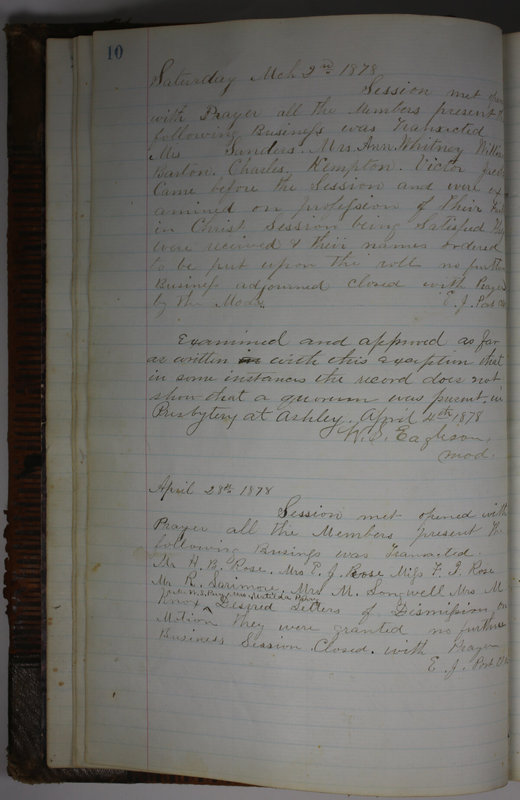 10
Saturday Mch 2nd 1878
Session met
with Prayer all the Members present
following Business was Transacted
Mrs Sanders. Mrs Ann Whitney
Barton. Charles. Kempton. Victor
Came before the Session and were ex
amined on profession of their
in Christ. Session being Satisfied
were received & their names ordered
to be put upon the roll no further
Business adjourned closed with Prayer
by the Mode. E. J. Post
Examined and approved as far
as written in with this exception that
in some instances the record does not
show that a quorum was present. in
Presbytery at Ashley. April 4th 1878
W. S. Eagleson,
Mod.
April 28th 1878
Session met opened with
Prayer all the Members present
following Business was Transacted.
Mr H. B. Rose. Mrs E. J. Rose. Miss F. J. Rose
Mr R. Mrs M. Longwell Mrs. M
Knox Desired Letters of Dismission, on
Motion they were granted no further
Business Session Closed. with Prayer
E. J. Post